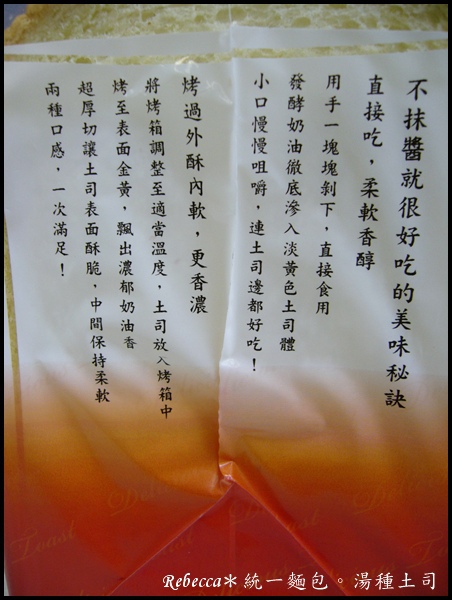 不抹醬就很好吃的美味秘訣
直接吃，柔軟香醇
用手一塊塊剝下，直接食用
發酵奶油徹底滲入淡黃色土司體
小口慢慢咀嚼，連土司邊都好吃！
烤過外酥內軟，更香濃
將烤箱調整至適當溫度，土司放入烤箱中
烤至表面金黃，飄出濃郁奶油香
超厚切讓土司表面酥脆，中間保持柔軟
兩種口感，一次滿足！
Toast
Rebecca＊統一麵包。湯種土司